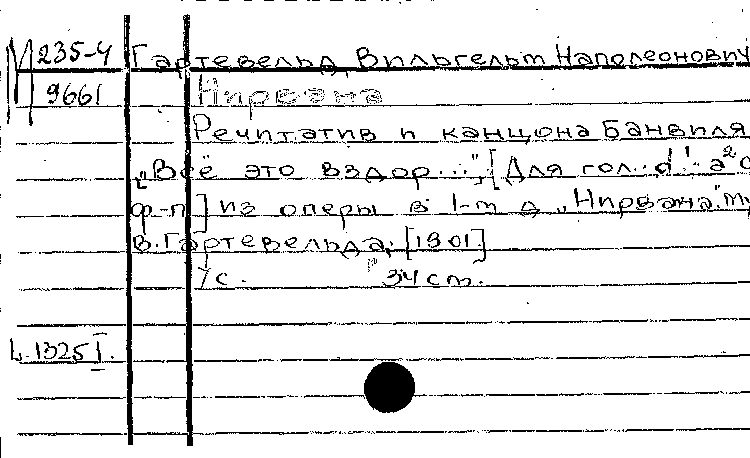 М 235-4 Гартевельд, Вильгельм Наполеонович
9661 Нирвана
Речитатив и канцона Банвиля
„Всё это вздор...",[Для гол. d¹-a² с
ф-п] из оперы в 1-м д „Нирвана". Му
В.Гартевельда, [1901]
7с. 34 cm.
L.1325 I.